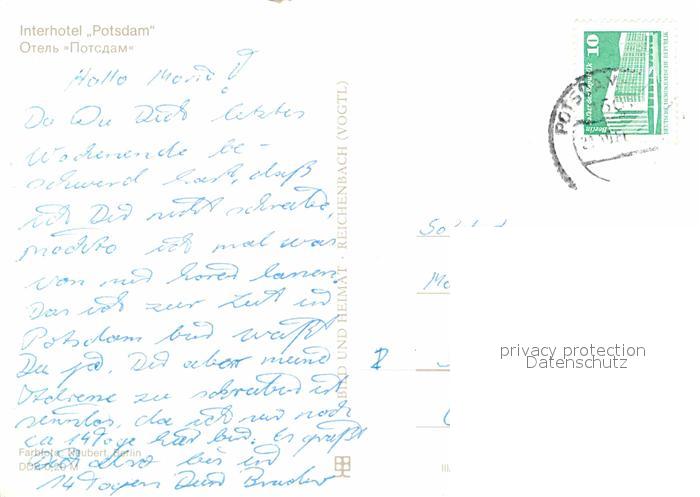 Interhotel „Potsdam“
Отель »Потсдам«
Hallo Mario!
Da Du Dich letztes
Wochenende be-
schwerd hast, daß
ich Dir nicht schreibe,
möchte ich mal was
von mir hören lassen.
Das ich zur Zeit in
Potsdam bin weißt
Du ja. Dir aber meine
Adresse zu schreiben ist
sinnlos, da ich nur noch
ca 14 Tage hier bin. Es grüßt
Dich also bis in
14 Tagen Dein Bruder
Farbfoto: Neubert, Berlin
DDR 0,20 M
BILD UND HEIMAT · REICHENBACH (VOGTL)
III/
10
Berlin
DEUTSCHE DEMOKRATISCHE REPUBLIK
POTSDA
privacy protection
Datenschutz